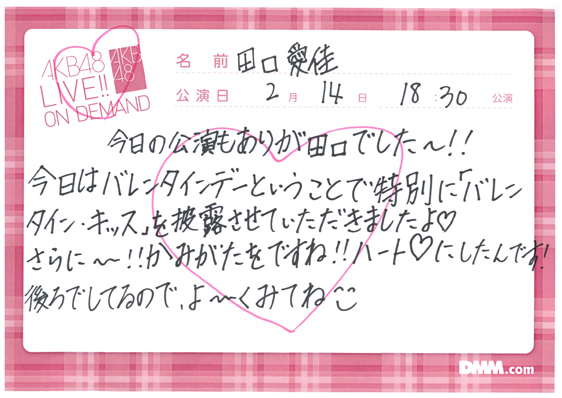 AKB48
LIVE!!
ON DEMAND
AKB
48
名前 田口愛佳
公演日 2月14日 18:30 公演
今日の公演もありが田口でした〜!!
今日はバレンタインデーということで特別に「バレン
タイン・キッス」を披露させていただきましたよ♡
さらに〜!!かみがたをですね!!ハート♡にしたんです!
後ろでしてるので、よ〜くみてね
DMM.com